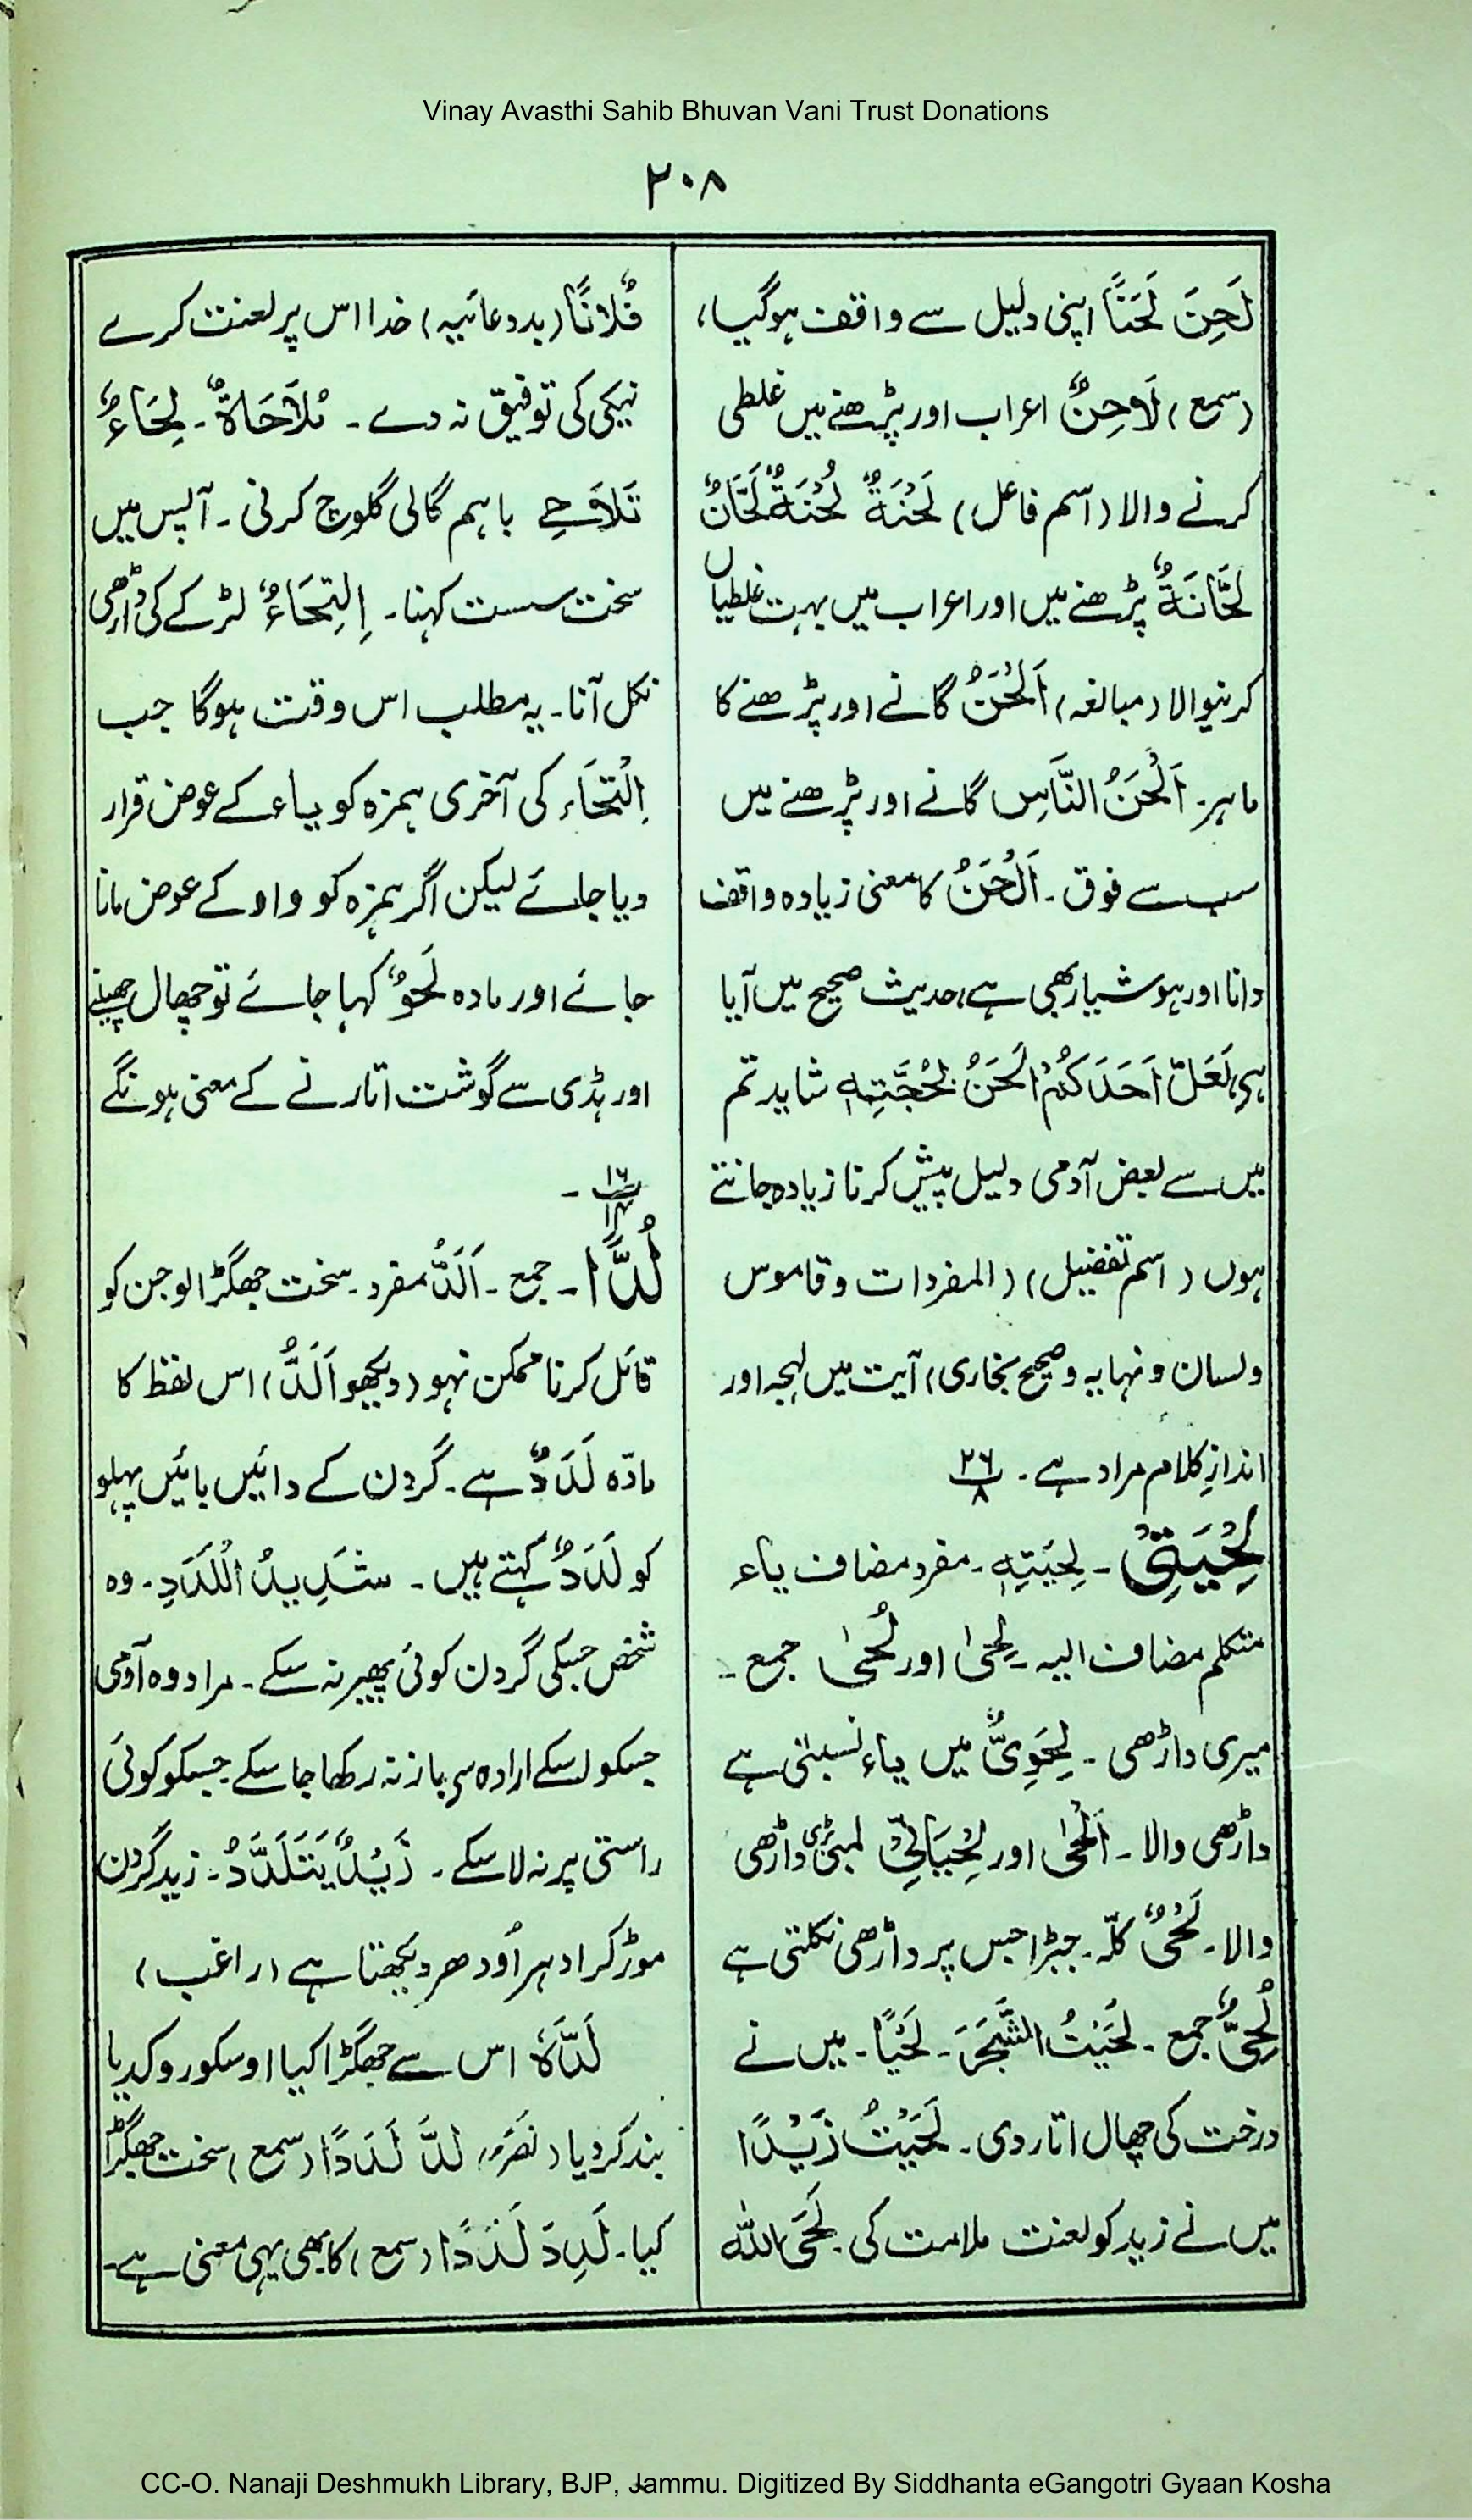 Vinay Avasthi Sahib Bhuvan Vani Trust Donations
۲۰۸
لَحِنَ لَحَنًا اپنی دلیل سے واقف ہوگیا،
(سمع) لَاحِنٌ اعراب اور پڑھنے میں غلطی
کرنے والا (اسم فاعل) لَحْنَةٌ لُحْنَةٌ لَحَّانٌ
لَحَّانَةٌ پڑھنے میں اور اعراب میں بہت غلطیاں
کرنیوالا (مبالغہ) اَلْحَنُ گانے اور پڑھنے کا
ماہر۔ اَلْحَنُ النَّاسِ گانے اور پڑھنے میں
سب سے فوق۔ اَلْحَنُ کا معنی زیادہ واقف
دانا اور ہوشیار بھی ہے، حدیث صحیح میں آیا
ہی لَعَلَّ اَحَدَكُمْ اَلْحَنُ بِحُجَّتِهٖ شاید تم
میں سے بعض آدمی دلیل پیش کرنا زیادہ جانتے
ہوں (اسم تفضیل) (المفردات و قاموس
ولسان و نہایہ و صحیح بخاری) آیت میں لہجہ اور
اندازِ کلام مراد ہے۔ ۲۶/۸
لِحْيَتِيْ۔ لِحْيَتِهٖ۔ مفرد مضاف یاء
متکلم مضاف الیہ۔ لِحیٰ اور لُحیٰ جمع۔
میری داڑھی۔ لِحَوِيٌّ میں یاء نسبتی ہے
داڑھی والا۔ اَلْحیٰ اور لِحْيَانِيٌّ لمبی بڑی داڑھی
والا۔ لَحْیٌ کلّہ۔ جبڑا جس پر داڑھی نکلتی ہے
لُحِیٌّ جمع۔ لَحَيْتُ الشَّجَرَ۔ لَحْيًا۔ میں نے
درخت کی چھال اتار دی۔ لَحَيْتُ زَيْدًا
میں نے زید کو لعنت ملامت کی۔ لَحَی اللہ
فُلَانًا (بددعائیہ) خدا اس پر لعنت کرے
نیکی کی توفیق نہ دے۔ مُلَاحَاةٌ۔ لِحَاءٌ
تَلَاحِے باہم گالی گلوچ کرنی۔ آپس میں
سخت سست کہنا۔ اِلْتِحَاءٌ لڑکے کی داڑھی
نکل آنا۔ یہ مطلب اس وقت ہوگا جب
اِلْتِحَاء کی آخری ہمزہ کو یاء کے عوض قرار
دیا جائے لیکن اگر ہمزہ کو واو کے عوض مانا
جائے اور مادہ لَحْوٌ کہا جائے تو چھال چھیلنے
اور ہڈی سے گوشت اتارنے کے معنی ہونگے
۱۶/۱۴۔
لُدًّا۔ جمع۔ اَلَدُّ مفرد۔ سخت جھگڑالو جن کو
قائل کرنا ممکن نہو (دیکھو اَلَدُّ) اس لفظ کا
مادّہ لَدَدٌ ہے۔ گردن کے دائیں بائیں پہلو
کو لَدَدٌ کہتے ہیں۔ شَدِيدُ اللَّدَدِ۔ وہ
شخص جسکی گردن کوئی پھیر نہ سکے۔ مراد وہ آدمی
جسکو اسکے ارادہ سی باز نہ رکھا جا سکے جسکو کوئی
راستی پر نہ لا سکے۔ زَيْدٌ يَتَلَدَّدُ۔ زید گردن
موڑ کر ادہر اُودھر دیکھتا ہے (راغب)
لَدَّهٗ اس سے جھگڑا کیا اوسکو روکدیا
بند کردیا (نَصَرَ) لَدَّ لَدَدًا (سمع) سخت جھگڑا
کیا۔ لَدِدَ لَدَدًا (سمع) کا بھی یہی معنی ہے۔
CC-O. Nanaji Deshmukh Library, BJP, Jammu. Digitized By Siddhanta eGangotri Gyaan Kosha